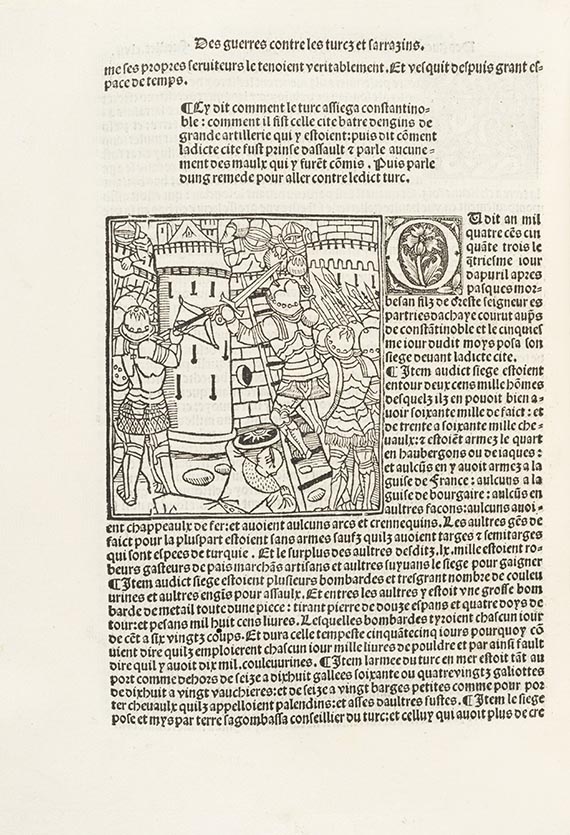 Des guerres contre les turcz et sarrazins.
me ses propres seruiteurs le tenoient veritablement. Et vesquit despuis grant es-
pace de temps.
¶Cy dit comment le turc assiega constantino-
ble : comment il fist celle cite batre dengins de
grande artillerie qui y estoient: puis dit cōment
ladicte cite fust prinse dassault ⁊ parle aucune-
ment des maulx qui y furēt cōmis . Puis parle
dung remede pour aller contre ledict turc.
OUdit an mil
quatre cēs cin
quāte trois le
q̄triesme iour
dapuril apres
pasques mor-
besan filz de oreste seigneur es
partries dachaye courut aup̄s
de constātinoble et le cinquies
me iour dudit moys posa son
siege deuant ladicte cite.
¶ Item audict siege estoient
entour deux cens mille hōmes
desquelz ilz en pouoit bien a-
uoir soixante mille de faict : et
de trente a soixante mille che-
uaulx: ⁊ estoiēt armez le quart
en haubergons ou de iaques :
et aulcūs en y auoit armez a la
guise de France : aulcuns a la
guise de bourgaire : aulcūs en
aultres facons: aulcuns auoi-
ent chappeaulx de fer: et auoient aulcuns arcs et crennequins. Les aultres gēs de
faict pour la pluspart estoient sans armes saufz quilz auoient targes ⁊ semitarges
qui sont especes de turquie . Et le surplus des aultres desditz .lx. mille estoient ro-
beurs gasteurs de pais marchās artisans et aultres suyuans le siege pour gaigner
¶Item audict siege estoient plusieurs bombardes et tresgrant nombre de couleu
urines et aultres engīs pour assaulx. Et entres les aultres y estoit vne grosse bom
barde de metail toute dune piece : tirant pierre de douze espans et quatre doys de
tour: et pesans mil huit cens liures. Lesquelles bombardes tyroient chascun iour
de cēt a six vingtz coups. Et dura celle tempeste cinquātecinq iours pourquoy cō
uient dire quilz emploierent chascun iour mille liures de pouldre et par ainsi fault
dire quil y auoit dix mil. couleuurines. ¶Item larmee du turc en mer estoit tāt au
port comme dehors de seize a dixhuit gallees soixante ou quatrevingtz galiottes
de dixhuit a vingt vauchieres: et de seize a vingt barges petites comme pour por
ter cheuaulx quilz appelloient palendins: et asses daultres fustes. ¶Item le siege
pose et mys par terre sagombassa conseillier du turc: et celluy qui auoit plus de cre